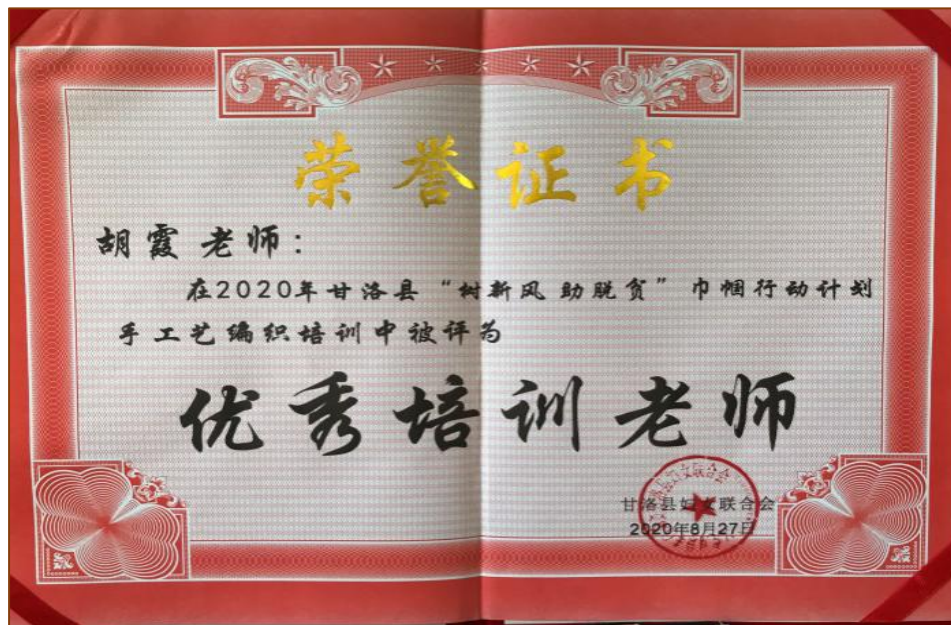 荣誉证书
胡霞老师：
在2020年甘洛县“树新风 助脱贫”巾帼行动计划
手工艺编织培训中被评为
优秀培训老师
甘洛县妇女联合会
2020年8月27日